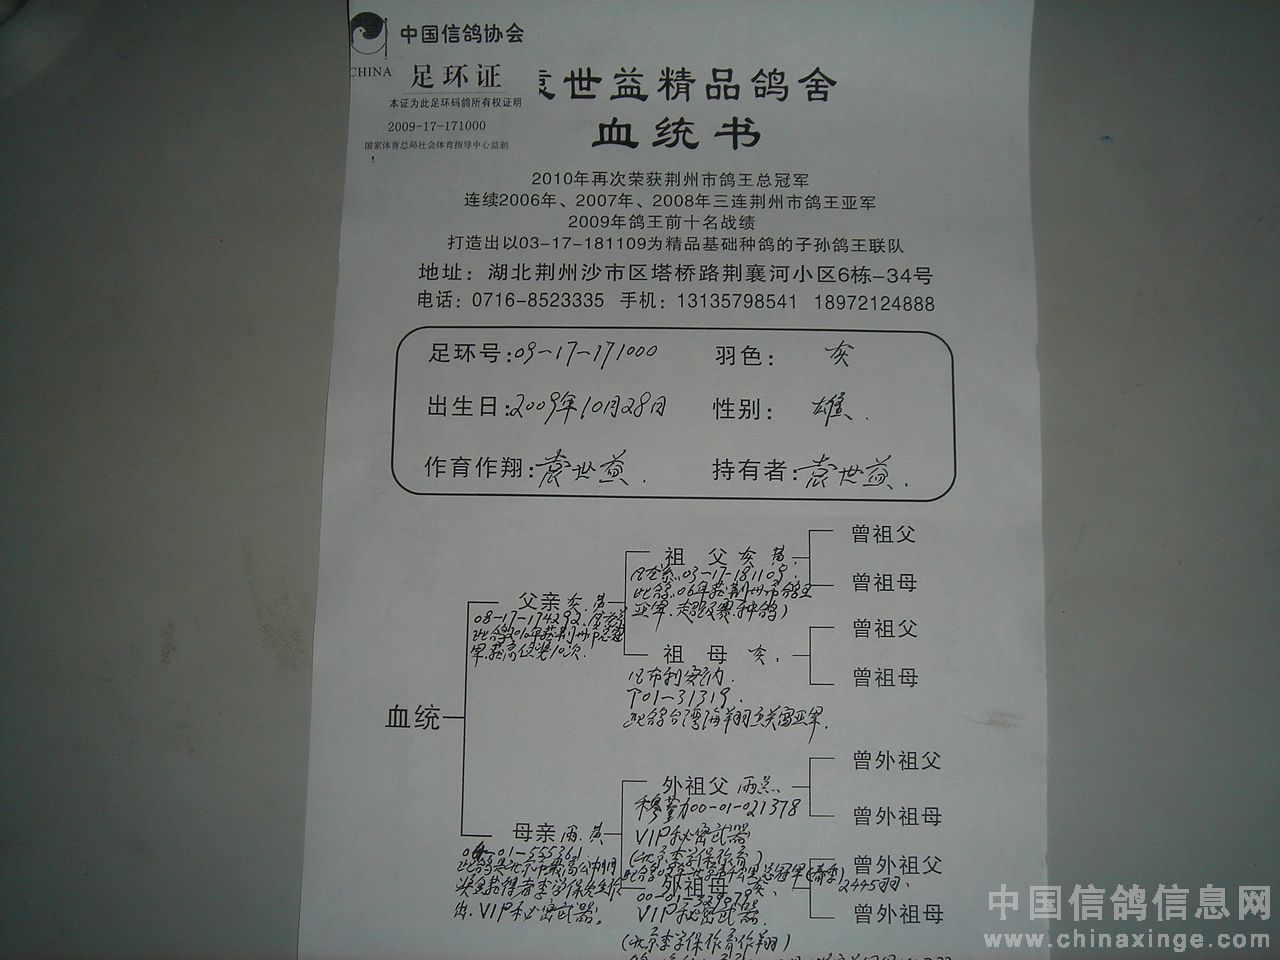 中国信鸽协会
CHINA
足环证
本证为此足环码鸽所有权证明
2009-17-171000
国家体育总局社会体育指导中心监制
袁世益精品鸽舍
血统书
2010年再次荣获荆州市鸽王总冠军
连续2006年、2007年、2008年三连荆州市鸽王亚军
2009年鸽王前十名战绩
打造出以03-17-181109为精品基础种鸽的子孙鸽王联队
地址：湖北荆州沙市区塔桥路荆襄河小区6栋-34号
电话：0716-8523335 手机：13135798541 18972124888
足环号：09-17-171000 羽色：灰
出生日：2009年10月28日 性别：雄.
作育作翔：袁世益. 持有者：袁世益.
血统
父亲 灰.黄
08-17-174292.
此鸽2010年获荆州市总冠
军.获高位奖10次.
祖父 灰 黄.
03-17-181109.
此鸽.06年获荆州市鸽王
亚军.超级赛种鸽)
曾祖父
曾祖母
祖母 灰.
T01-31319.
此鸽台湾海翔五关
亚军.
曾祖父
曾祖母
母亲 雨.黄
01-555361
此鸽是北京市最高公棚
奖金获得者李学保
出.VIP秘密武器.
外祖父 雨点.
穆勒 00-01-021378
VIP秘密武器
(北京李学保作育)
总冠军(春季)
2445羽.
曾外祖父
曾外祖母
外祖母 灰.
VIP秘密武器.
(北京李学保作育作翔)
曾外祖父
曾外祖母
中国信鸽信息网
www.chinaxinge.com